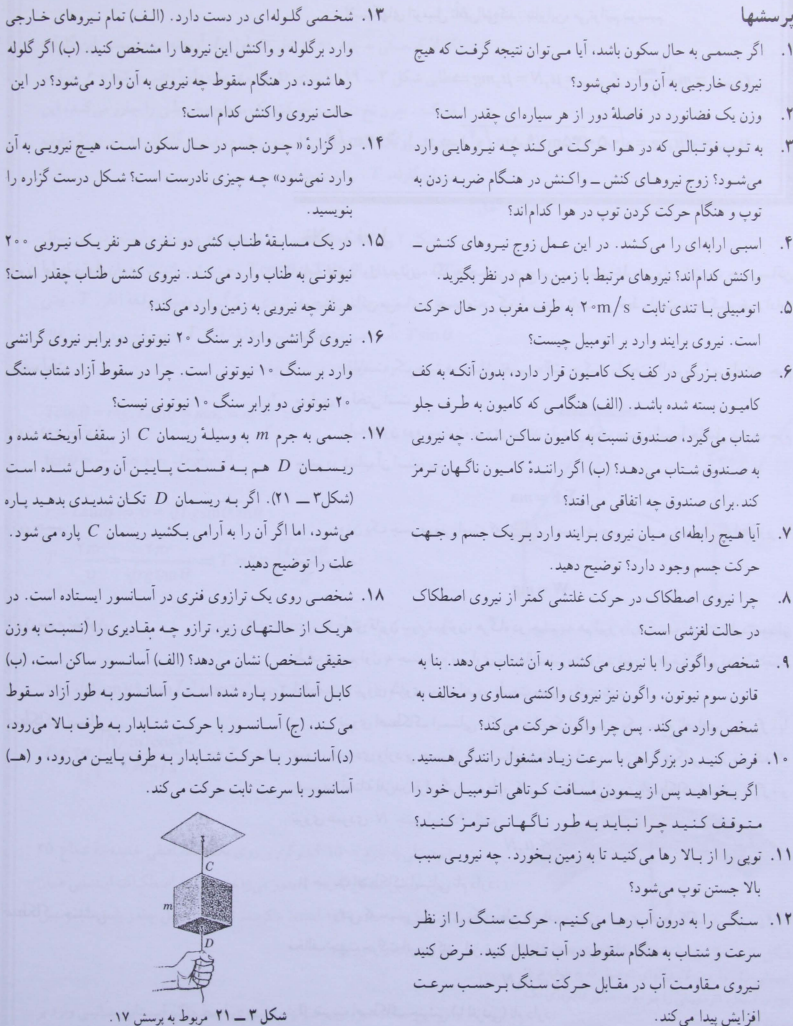 پرسشها
۱. اگر جسمی به حال سکون باشد، آیا می‌توان نتیجه گرفت که هیچ
نیروی خارجیی به آن وارد نمی‌شود؟
۲. وزن یک فضانورد در فاصلهٔ دور از هر سیاره‌ای چقدر است؟
۳. به توپ فوتبالی که در هوا حرکت می‌کند چه نیروهایی وارد
می‌شود؟ زوج نیروهای کنش ــ واکنش در هنگام ضربه زدن به
توپ و هنگام حرکت کردن توپ در هوا کدام‌اند؟
۴. اسبی ارابه‌ای را می‌کشد. در این عمل زوج نیروهای کنش ــ
واکنش کدام‌اند؟ نیروهای مرتبط با زمین را هم در نظر بگیرید.
۵. اتومبیلی با تندی ثابت ۲۰m/s به طرف مغرب در حال حرکت
است. نیروی برایند وارد بر اتومبیل چیست؟
۶. صندوق بزرگی در کف یک کامیون قرار دارد، بدون آنکه به کف
کامیون بسته شده باشد. (الف) هنگامی که کامیون به طرف جلو
شتاب می‌گیرد، صندوق نسبت به کامیون ساکن است. چه نیرویی
به صندوق شتاب می‌دهد؟ (ب) اگر رانندهٔ کامیون ناگهان ترمز
کند. برای صندوق چه اتفاقی می‌افتد؟
۷. آیا هیچ رابطه‌ای میان نیروی برایند وارد بر یک جسم و جهت
حرکت جسم وجود دارد؟ توضیح دهید.
۸. چرا نیروی اصطکاک در حرکت غلتشی کمتر از نیروی اصطکاک
در حالت لغزشی است؟
۹. شخصی واگونی را با نیرویی می‌کشد و به آن شتاب می‌دهد. بنا به
قانون سوم نیوتون، واگون نیز نیروی واکنشی مساوی و مخالف به
شخص وارد می‌کند. پس چرا واگون حرکت می‌کند؟
۱۰. فرض کنید در بزرگراهی با سرعت زیاد مشغول رانندگی هستید.
اگر بخواهید پس از پیمودن مسافت کوتاهی اتومبیل خود را
متوقف کنید چرا نباید به طور ناگهانی ترمز کنید؟
۱۱. توپی را از بالا رها می‌کنید تا به زمین بخورد. چه نیرویی سبب
بالا جستن توپ می‌شود؟
۱۲. سنگی را به درون آب رها می‌کنیم. حرکت سنگ را از نظر
سرعت و شتاب به هنگام سقوط در آب تحلیل کنید. فرض کنید
نیروی مقاومت آب در مقابل حرکت سنگ برحسب سرعت
افزایش پیدا می‌کند.
۱۳. شخصی گلوله‌ای در دست دارد. (الف) تمام نیروهای خارجی
وارد برگلوله و واکنش این نیروها را مشخص کنید. (ب) اگر گلوله
رها شود، در هنگام سقوط چه نیرویی به آن وارد می‌شود؟ در این
حالت نیروی واکنش کدام است؟
۱۴. در گزارهٔ « چون جسم در حال سکون است، هیچ نیرویی به آن
وارد نمی‌شود» چه چیزی نادرست است؟ شکل درست گزاره را
بنویسید.
۱۵. در یک مسابقهٔ طناب کشی دو نفری هر نفر یک نیرویی ۲۰۰
نیوتونی به طناب وارد می‌کند. نیروی کشش طناب چقدر است؟
هر نفر چه نیرویی به زمین وارد می‌کند؟
۱۶. نیروی گرانشی وارد بر سنگ ۲۰ نیوتونی دو برابر نیروی گرانشی
وارد بر سنگ ۱۰ نیوتونی است. چرا در سقوط آزاد شتاب سنگ
۲۰ نیوتونی دو برابر سنگ ۱۰ نیوتونی نیست؟
۱۷. جسمی به جرم m به وسیلهٔ ریسمان C از سقف آویخته شده و
ریسمان D هم به قسمت پایین آن وصل شده است
(شکل۳ ــ ۲۱). اگر به ریسمان D تکان شدیدی بدهید پاره
می‌شود، اما اگر آن را به آرامی بکشید ریسمان C پاره می شود.
علت را توضیح دهید.
۱۸. شخصی روی یک ترازوی فنری در آسانسور ایستاده است. در
هریک از حالتهای زیر، ترازو چه مقادیری را (نسبت به وزن
حقیقی شخص) نشان می‌دهد؟ (الف) آسانسور ساکن است، (ب)
کابل آسانسور پاره شده است و آسانسور به طور آزاد سقوط
می‌کند، (ج) آسانسور با حرکت شتابدار به طرف بالا می‌رود،
(د) آسانسور با حرکت شتابدار به طرف پایین می‌رود، و (هـ)
آسانسور با سرعت ثابت حرکت می‌کند.
C
m
D
شکل ۳ ــ ۲۱ مربوط به پرسش ۱۷.